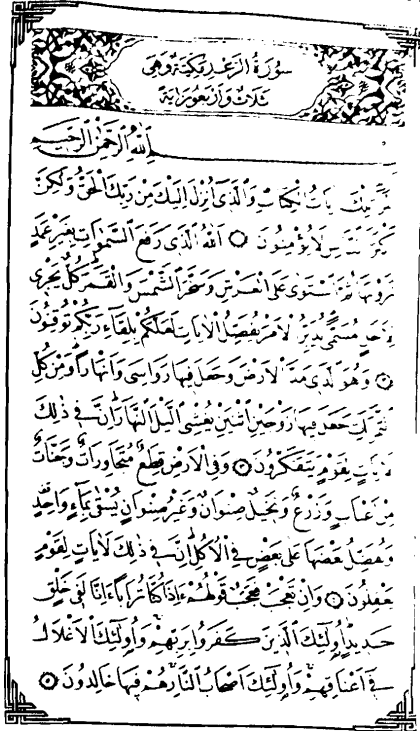 سُورَةُ الرَّعْدِ مَكِّيَّةٌ وَهِيَ
ثَلَاثٌ وَأَرْبَعُونَ اٰيَةً
اللّٰهِ الرَّحْمٰنِ الرَّحِيمِ
تِلْكَ اٰيَاتُ الْكِتَابِ وَالَّذِى اُنْزِلَ اِلَيْكَ مِنْ رَبِّكَ الْحَقُّ وَلٰكِنَّ
اَكْثَرَ النَّاسِ لَا يُؤْمِنُونَ ۝ اَللّٰهُ الَّذِى رَفَعَ السَّمٰوَاتِ بِغَيْرِ عَمَدٍ
تَرَوْنَهَا ثُمَّ اسْتَوٰى عَلَى الْعَرْشِ وَسَخَّرَ الشَّمْسَ وَالْقَمَرَ كُلٌّ يَجْرِى
لِاَجَلٍ مُسَمًّى يُدَبِّرُ الْاَمْرَ يُفَصِّلُ الْاٰيَاتِ لَعَلَّكُمْ بِلِقَاءِ رَبِّكُمْ تُوقِنُونَ
۝ وَهُوَ الَّذِى مَدَّ الْاَرْضَ وَجَعَلَ فِيهَا رَوَاسِىَ وَاَنْهَارًا وَمِنْ كُلِّ
الثَّمَرَاتِ جَعَلَ فِيهَا زَوْجَيْنِ اثْنَيْنِ يُغْشِى الَّيْلَ النَّهَارَ اِنَّ فِى ذٰلِكَ
لَاٰيَاتٍ لِقَوْمٍ يَتَفَكَّرُونَ ۝ وَفِى الْاَرْضِ قِطَعٌ مُتَجَاوِرَاتٌ وَجَنَّاتٌ
مِنْ اَعْنَابٍ وَزَرْعٌ وَنَخِيلٌ صِنْوَانٌ وَغَيْرُ صِنْوَانٍ يُسْقٰى بِمَاءٍ وَاحِدٍ
وَنُفَضِّلُ بَعْضَهَا عَلٰى بَعْضٍ فِى الْاُكُلِ اِنَّ فِى ذٰلِكَ لَاٰيَاتٍ لِقَوْمٍ
يَعْقِلُونَ ۝ وَاِنْ تَعْجَبْ فَعَجَبٌ قَوْلُهُمْ ءَاِذَا كُنَّا تُرَابًا ءَاِنَّا لَفِى خَلْقٍ
جَدِيدٍ اُولٰئِكَ الَّذِينَ كَفَرُوا بِرَبِّهِمْ وَاُولٰئِكَ الْاَغْلَالُ
فِى اَعْنَاقِهِمْ وَاُولٰئِكَ اَصْحَابُ النَّارِ هُمْ فِيهَا خَالِدُونَ ۝